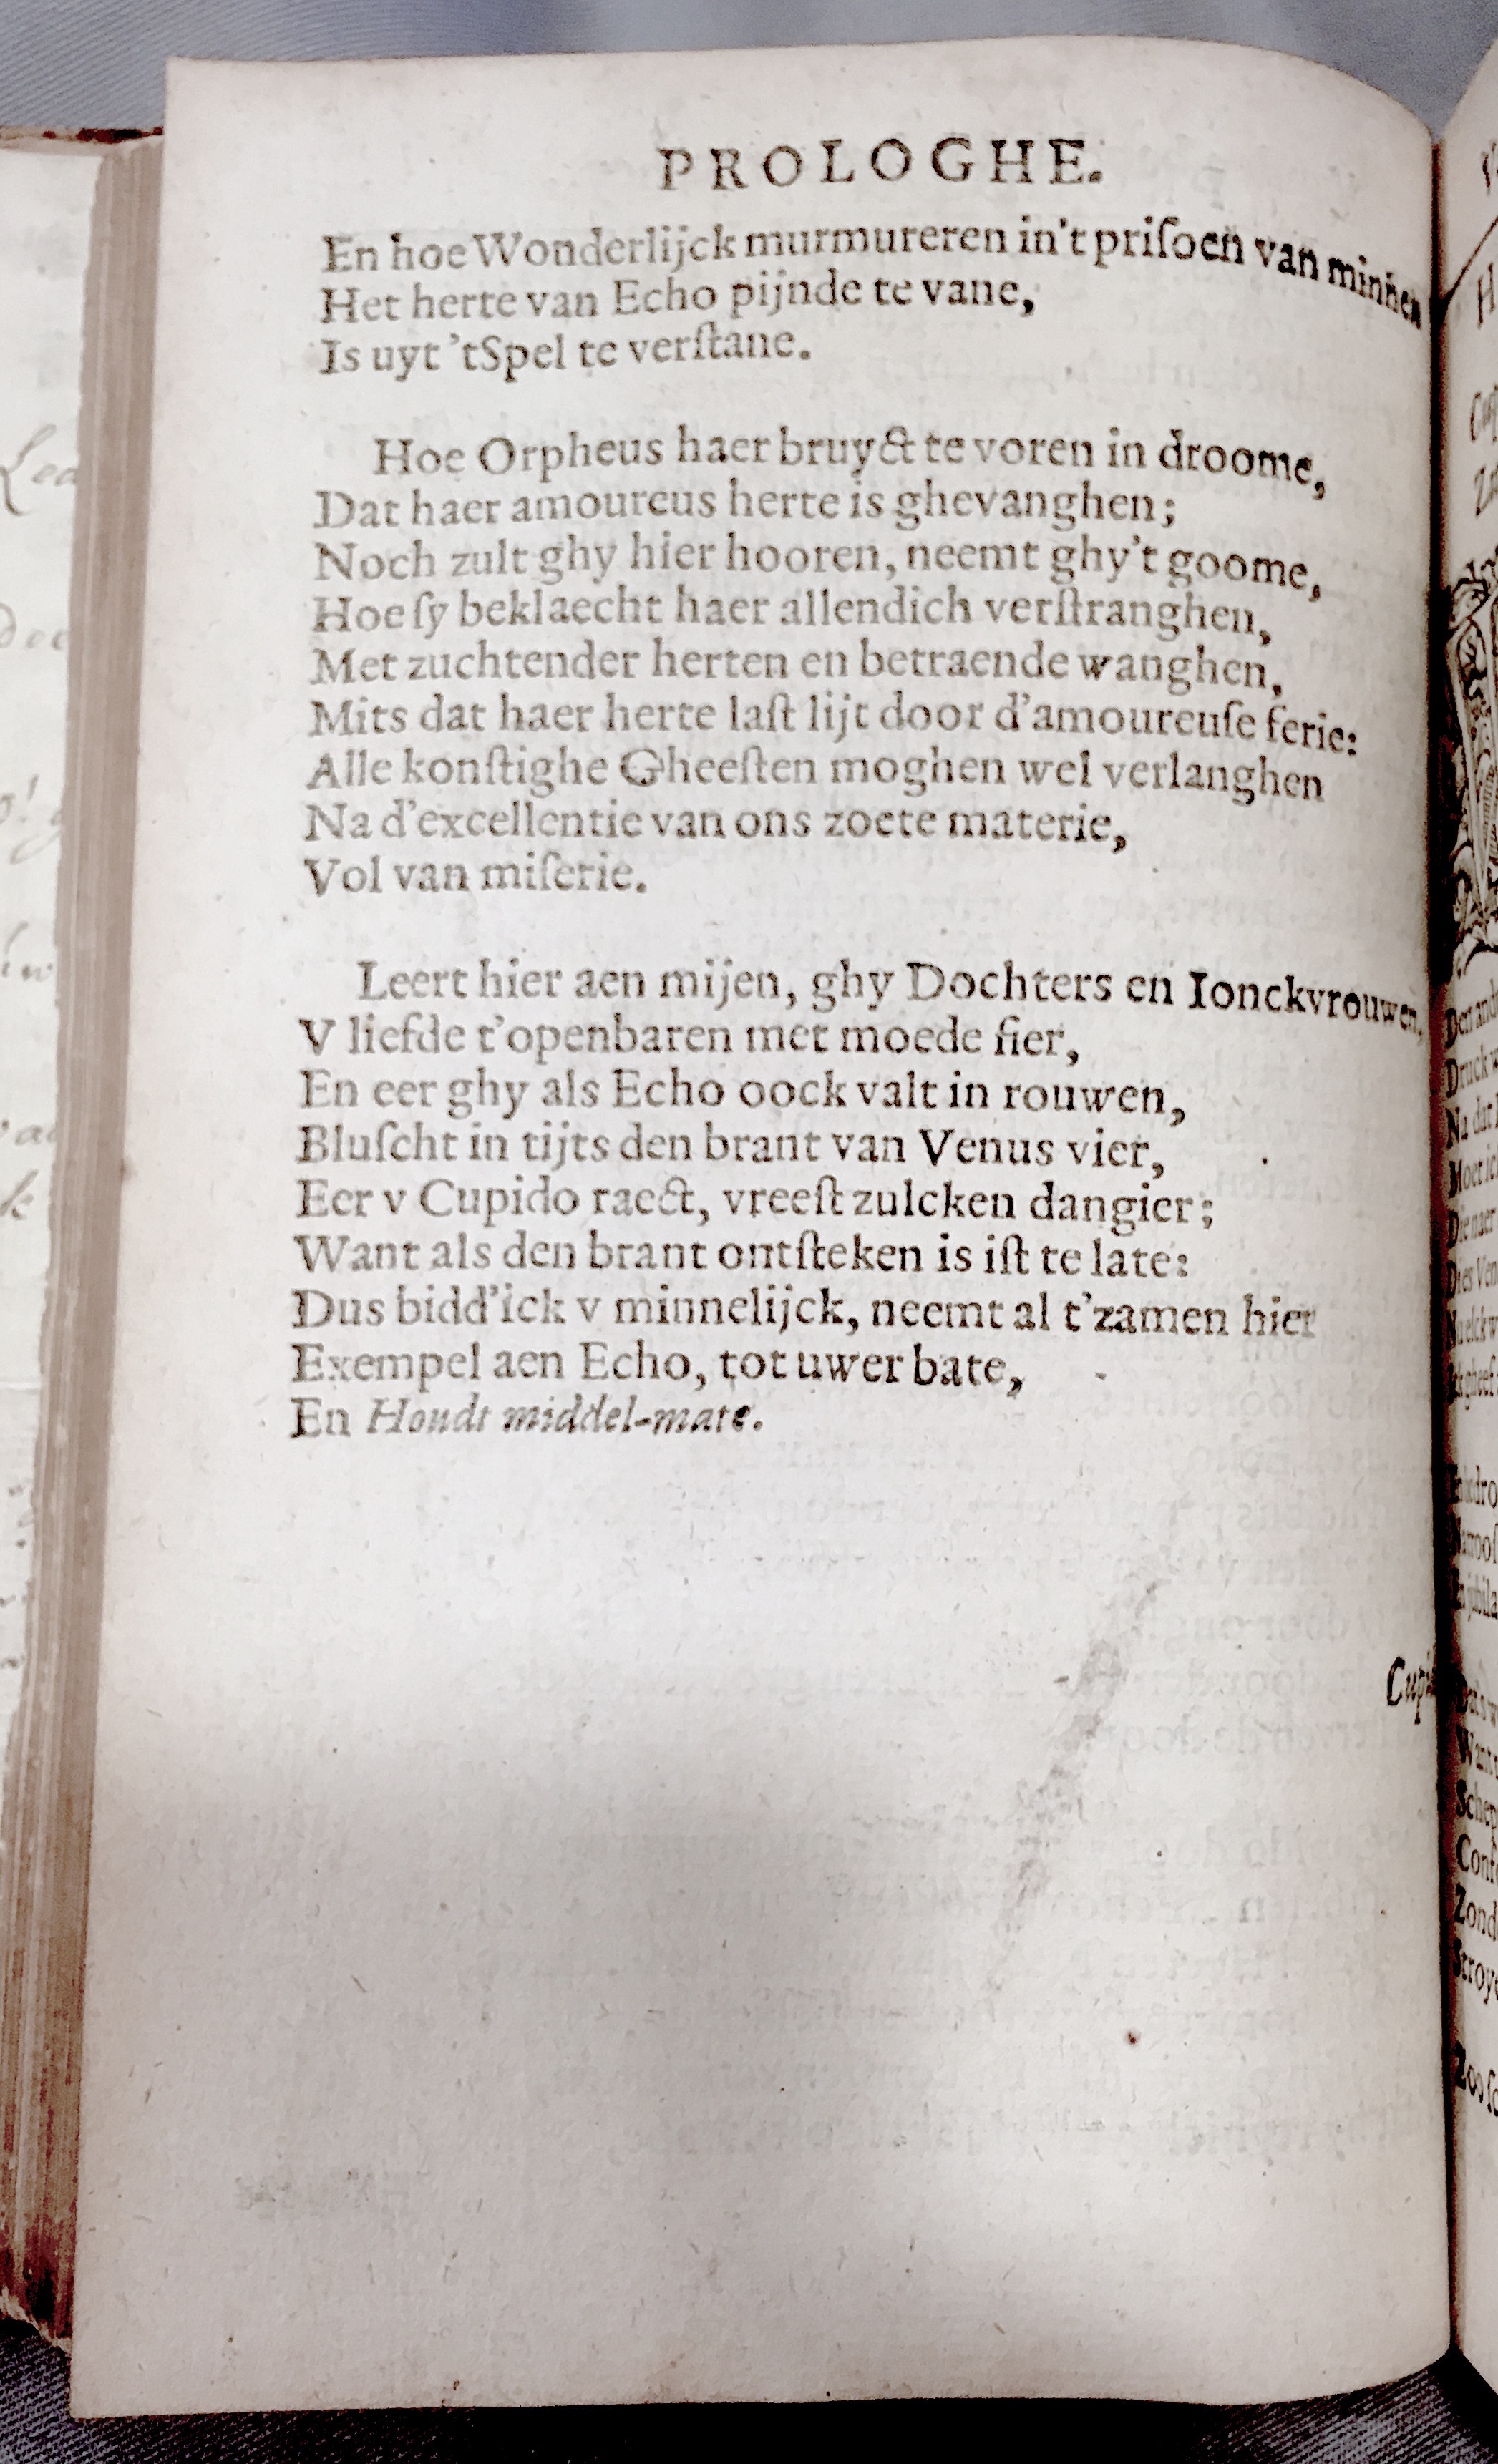 PROLOGHE.
En hoe Wonderlijck murmureren in't priſoen van minnen
Het herte van Echo pijnde te vane,
Is uyt 'tSpel te verſtane.
Hoe Orpheus haer bruyct te voren in droome,
Dat haer amoureus herte is ghevanghen;
Noch zult ghy hier hooren, neemt ghy't goome,
Hoe ſy beklaecht haer allendich verſtranghen,
Met zuchtender herten en betraende wanghen,
Mits dat haer herte laſt lijt door d'amoureuſe ferie:
Alle konſtighe Gheeſten moghen wel verlanghen
Na d'excellentie van ons zoete materie,
Vol van miſerie.
Leert hier aen mijen, ghy Dochters en Ionckvrouwen,
V liefde t'openbaren met moede fier,
En eer ghy als Echo oock valt in rouwen,
Bluſcht in tijts den brant van Venus vier,
Eer v Cupido raect, vreeſt zulcken dangier;
Want als den brant ontſteken is iſt te late:
Dus bidd'ick v minnelijck, neemt al t'zamen hier
Exempel aen Echo, tot uwer bate,
En Houdt middel-mate.